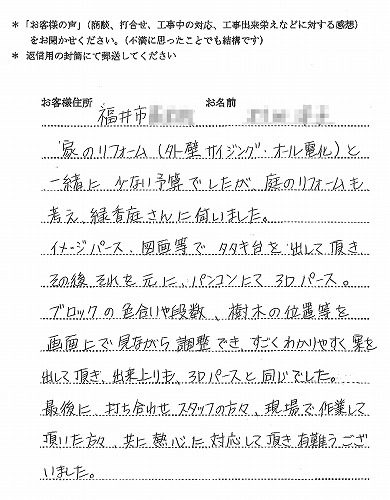 ＊「お客様の声」(商談、打合せ、工事中の対応、工事出来栄えなどに対する感想)
をお聞かせください。(不満に思ったことでも結構です)
＊ 返信用の封筒にて郵送してください
お客様住所 福井市 お名前
家のリフォーム(外壁サイジング・オール電化)と
一緒に 少ない予算でしたが、庭のリフォームも
考え、緑香庭さんに伺いました。
イメージパース、図面等で タタキ台を出して頂き、
その後 それを元に、パンコンにて 3Dパース。
ブロックの色合いや段数、樹木の位置等を
画面上で見ながら 調整でき、すごくわかりやすく 案を
出して頂き、出来上りも、3Dパースと同じでした。
最後に、打ち合わせ スタッフの方々、現場で作業して
頂いた方々、共に熱心に対応して頂き有難うござ
いました。